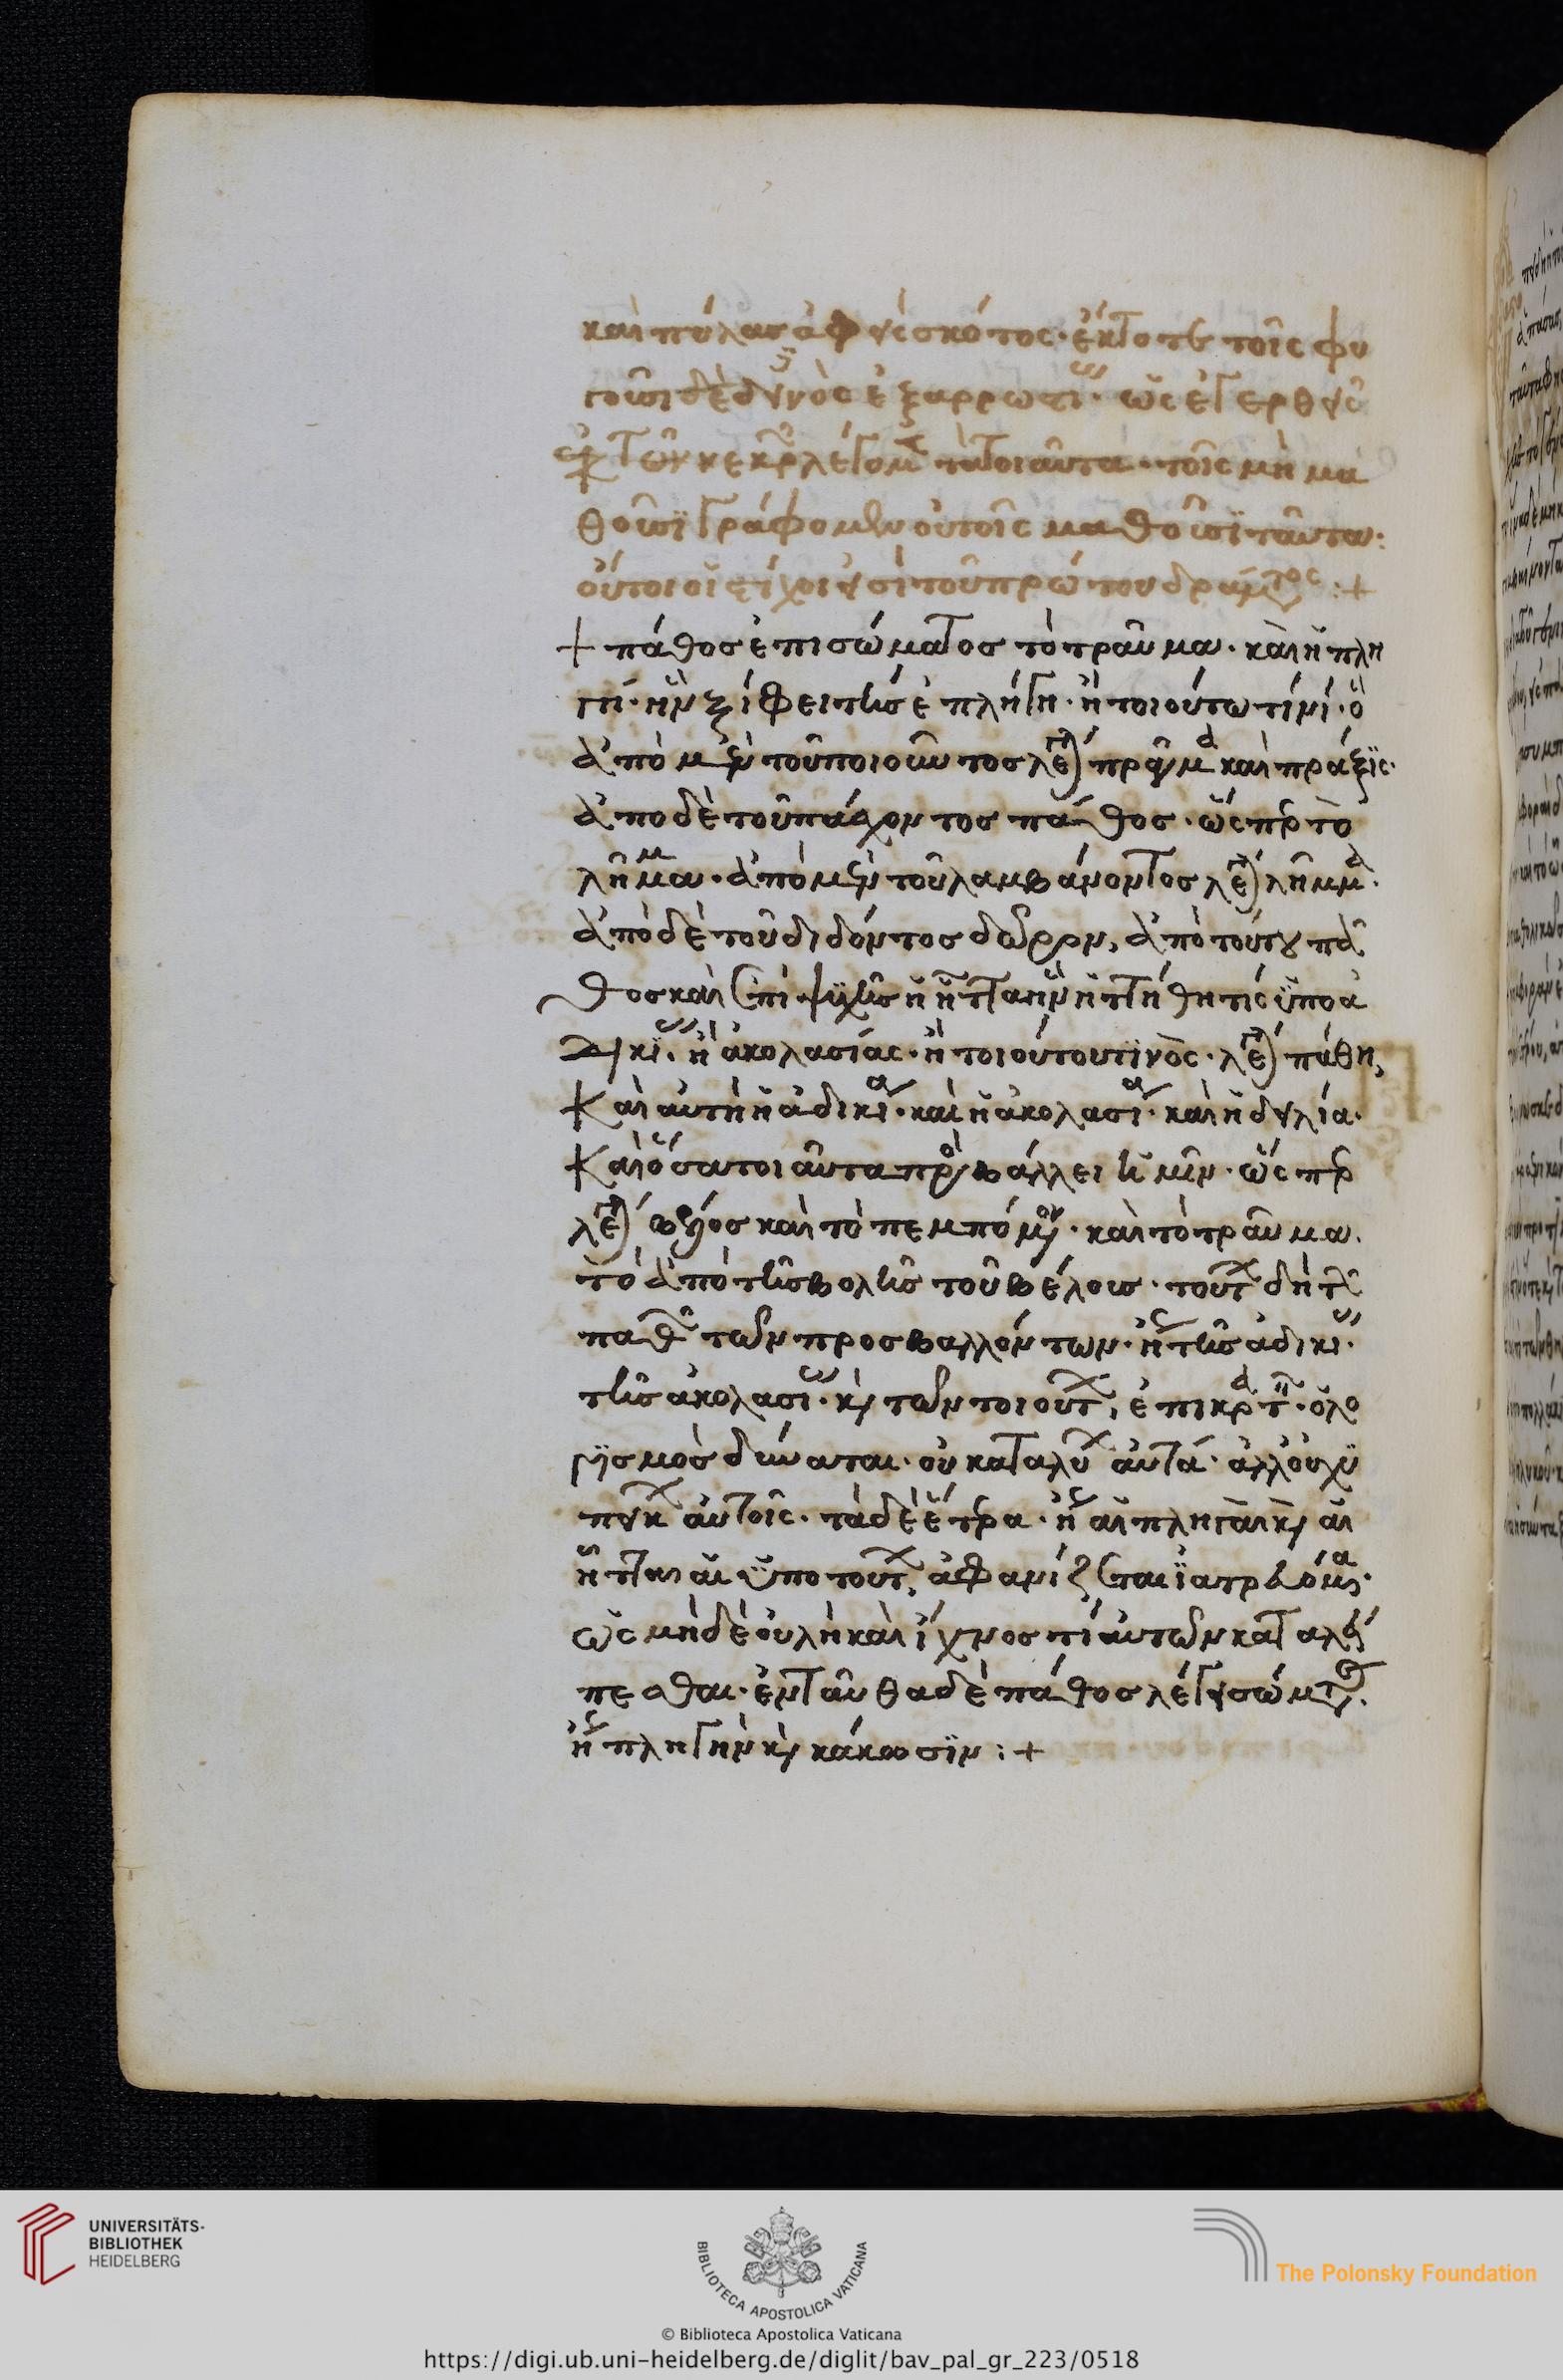 καὶ πύλας ἀφεὶς σκότος· ἔκτοτε τοῖς φυ
τοῦσι δὲ δεινὸς ἐξαρρωστί· ὡς ἐγερθεὶς
τῶν νεκρ λέγομ τὰ τοιαῦτα· τοῖς μὴ μα
θοῦσϊ γράφομεν οὐ τοῖς μαθοῦσϊ ταῦτα:
οὗτοι οἱ στίχοι εἰσὶ τοῦ πρώτου δράματος :+
+ πάθος ἐπι σώματος τὸ τραῦμα· καὶ ἡ πλη
γή· ἣν ξίφει τις ἐπλήγη· ἢ τοιούτω τινί· ὃ
ἀπὸ μὲν τοῦ ποιοῦντος λέγ πρᾶγμα καὶ πράξϊς·
ἀπο δὲ τοῦ πάσχοντος πάθος· ὥσπερ τὸ
λῆμμα· ἀπὸ μὲν τοῦ λαμβάνοντος λέγ λῆμμα·
ἀπὸ δὲ τοῦ διδόντος δῶρον, ἀπὸ τούτου πά
θος καὶ ἐπὶ ψυχῆς ἡ ἧττα ἣν ἡττήθη τίς ὑπο ἀ
δικίας· ἢ ἀκολασίας· ἢ τοιούτου τϊνὸς· λέγ πάθη,
Καὶ αὐτὴ ἡ ἀδικία· καὶ ἡ ἀκολασία· καὶ ἡ δειλία·
Καὶ ὅσα τοιαῦτα προσβάλλει ἡμῖν· ὥσπερ
λέγ βέλος καὶ τὸ πεμπόμενον· καὶ τὸ τραῦμα·
τὸ ἀπὸ τῆς βολῆς τοῦ βέλους· τούτων δὴ τῶν
παθῶν τῶν προσβαλλόντων· ἤγουν τῆς ἀδικίας·
τῆς ἀκολασίας· καὶ τῶν τοιούτων, ἐπικρατεῖν ὁ λο
γϊσμὸς δύναται· οὐ καταλύων αὐτά· ἀλλ' οὐχ ὑ
πείκων αὐτοῖς· τὰ δὲ ἕτερα· ἤγουν αἱ πληγαὶ καὶ αἱ
ἧτται αἱ ὑπο τούτων, ἀφανίζονται ϊατρευόμεναι·
ὡς μὴ δὲ οὐλὴν καὶ ἴχνος τί αὐτῶν καταλεί
πεσθαι· ἐνταῦθα δὲ πάθος λέγει σώματος·
ἤγουν πληγὴν καὶ κάκωσϊν :+
UNIVERSITÄTS-
BIBLIOTHEK
HEIDELBERG
BIBLIOTECA APOSTOLICA VATICANA
The Polonsky Foundation
© Biblioteca Apostolica Vaticana
https://digi.ub.uni-heidelberg.de/diglit/bav_pal_gr_223/0518